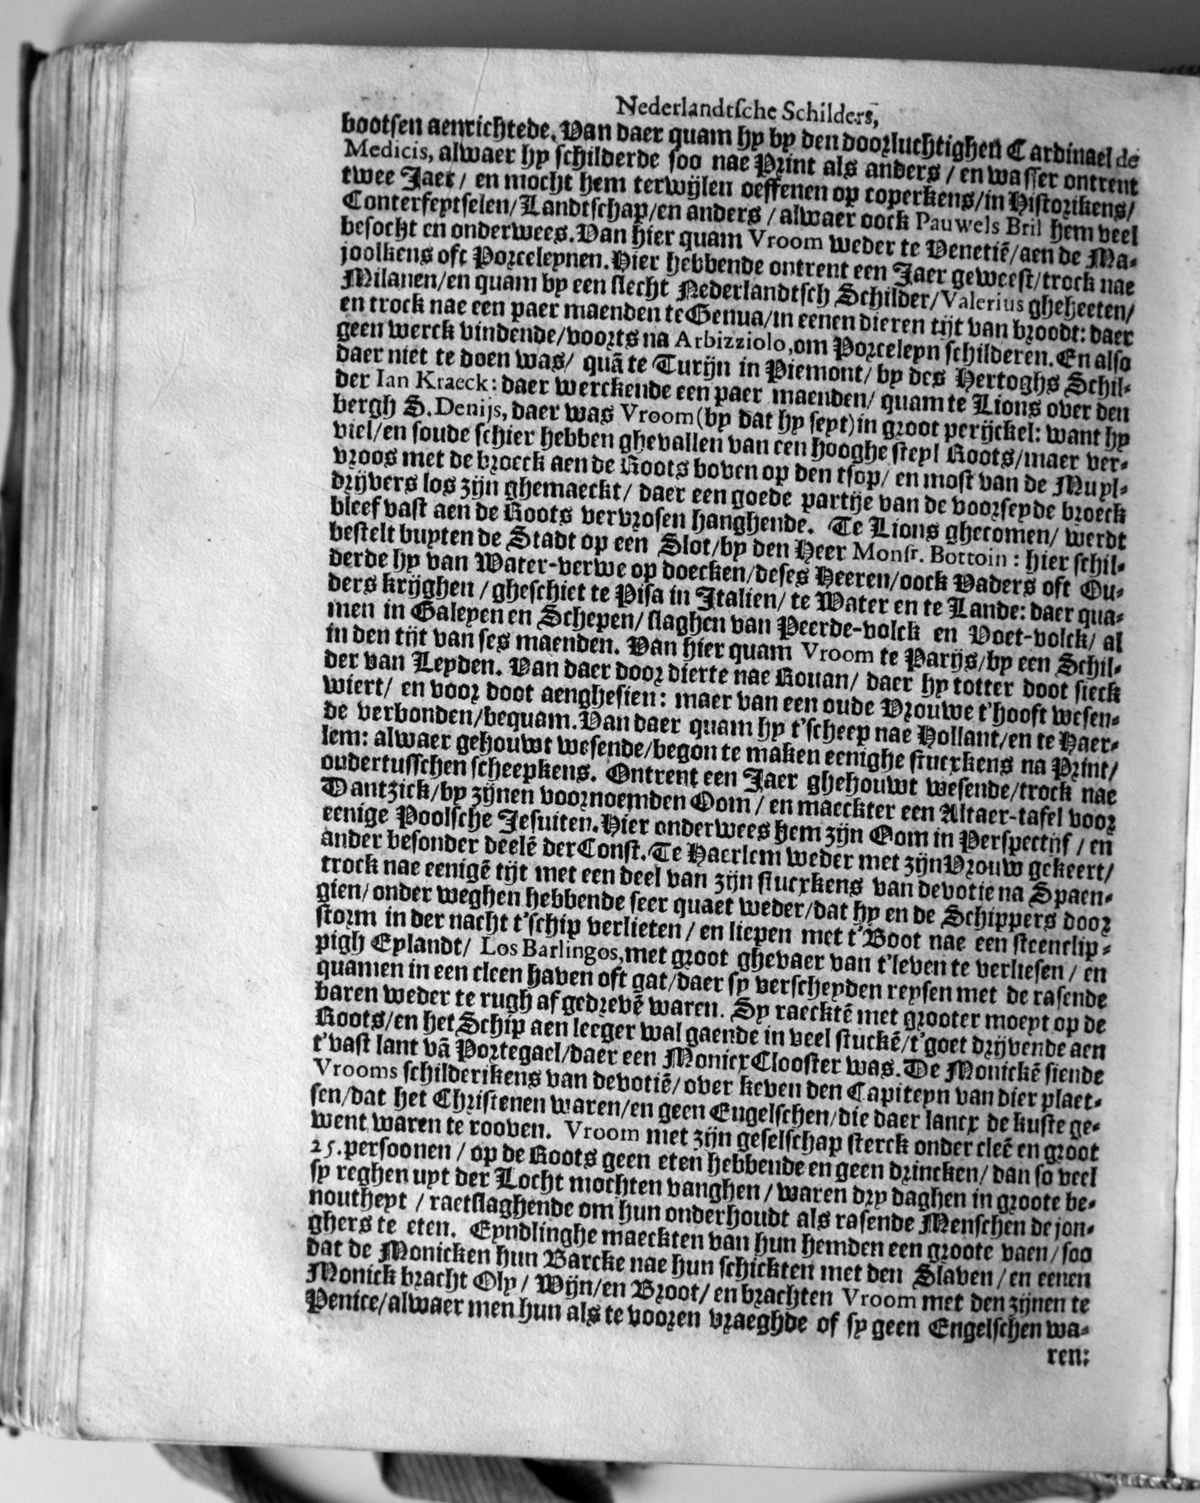 Nederlandtſche Schilders,
bootſen aenrichtede. Van daer quam hy by den doorluchtighen Cardinael de
Medicis, alwaer hy ſchilderde ſoo nae Print als anders / en waſſer ontrent
twee Jaer / en mocht hem terwijlen oeffenen op coperkens/in Hiſtorikens/
Conterfeytſelen/Landtſchap/en anders / alwaer oock Pauwels Bril hem veel
beſocht en onderwees. Van hier quam Vroom weder te Venetiē/aen de Ma-
joolkens oft Porceleynen. Hier hebbende ontrent een Jaer geweeſt/trock nae
Milanen/en quam by een ſlecht Nederlandtſch Schilder/Valerius gheheeten/
en trock nae een paer maenden te Genua/in eenen dieren tijt van broodt: daer
geen werck vindende/voorts na Arbizziolo, om Porceleyn ſchilderen. En alſo
daer niet te doen was/ quā te Turijn in Piemont/ by des Hertoghs Schil-
der Ian Kraeck: daer werckende een paer maenden/ quam te Lions over den
bergh S. Denijs, daer was Vroom (by dat hy ſeyt) in groot perijckel: want hy
viel/en ſoude ſchier hebben ghevallen van een hooghe ſteyl Roots/maer ver-
vroos met de broeck aen de Roots boven op den tſop/ en moſt van de Muyl-
drijvers los zijn ghemaeckt/ daer een goede partije van de voorſeyde broeck
bleef vaſt aen de Roots vervroſen hanghende. Te Lions ghecomen/ werdt
beſtelt buyten de Stadt op een Slot/by den Heer Monſr. Bottoin : hier ſchil-
derde hy van Water-verwe op doecken/deſes Heeren/oock Vaders oft Ou-
ders krijghen / gheſchiet te Piſa in Italien/ te Water en te Lande: daer qua-
men in Galeyen en Schepen/ ſlaghen van Peerde-volck en Voet-volck/ al
in den tijt van ſes maenden. Van hier quam Vroom te Parijs/by een Schil-
der van Leyden. Van daer door dierte nae Rouan/ daer hy totter doot ſieck
wiert/ en voor doot aengheſien: maer van een oude Vrouwe t'hooft weſen-
de verbonden/bequam. Van daer quam hy t'ſcheep nae Hollant/en te Haer-
lem: alwaer gehouwt weſende/begon te maken eenighe ſtucxkens na Print/
ondertuſſchen ſcheepkens. Ontrent een Jaer ghehouwt weſende/trock nae
Dantzick/by zijnen voornoemden Oom / en maeckter een Altaer-tafel voor
eenige Poolſche Jeſuiten. Hier onderwees hem zijn Oom in Perſpectijf / en
ander beſonder deelē der Conſt. Te Haerlem weder met zijn Vrouw gekeert/
trock nae eenigē tijt met een deel van zijn ſtucxkens van devotie na Spaen-
gien/ onder weghen hebbende ſeer quaet weder/dat hy en de Schippers door
ſtorm in der nacht t'ſchip verlieten / en liepen met t'Boot nae een ſteenclip-
pigh Eylandt/ Los Barlingos, met groot ghevaer van t'leven te verlieſen / en
quamen in een cleen haven oft gat/daer ſy verſcheyden reyſen met de raſende
baren weder te rugh af gedrevē waren. Sy raecktē met grooter moeyt op de
Roots/en het Schip aen leeger wal gaende in veel ſtuckē/t'goet drijvende aen
t'vaſt lant vā Portegael/daer een Monicx Clooſter was. De Monickē ſiende
Vrooms ſchilderikens van devotiē/ over keven den Capiteyn van dier plaet-
ſen/dat het Chriſtenen waren/en geen Engelſchen/die daer lancx de kuſte ge-
went waren te rooven. Vroom met zijn geſelſchap ſterck onder cleē en groot
25. perſoonen / op de Roots geen eten hebbende en geen drincken/ dan ſo veel
ſy reghen uyt der Locht mochten vanghen / waren dry daghen in groote be-
noutheyt / raetſlaghende om hun onderhoudt als raſende Menſchen de jon-
ghers te eten. Eyndlinghe maeckten van hun hemden een groote vaen/ſoo
dat de Monicken hun Barcke nae hun ſchickten met den Slaven / en eenen
Monick bracht Oly / Wijn/en Broot/ en brachten Vroom met den zijnen te
Penice/alwaer men hun als te vooren vraeghde of ſy geen Engelſchen wa-
ren: